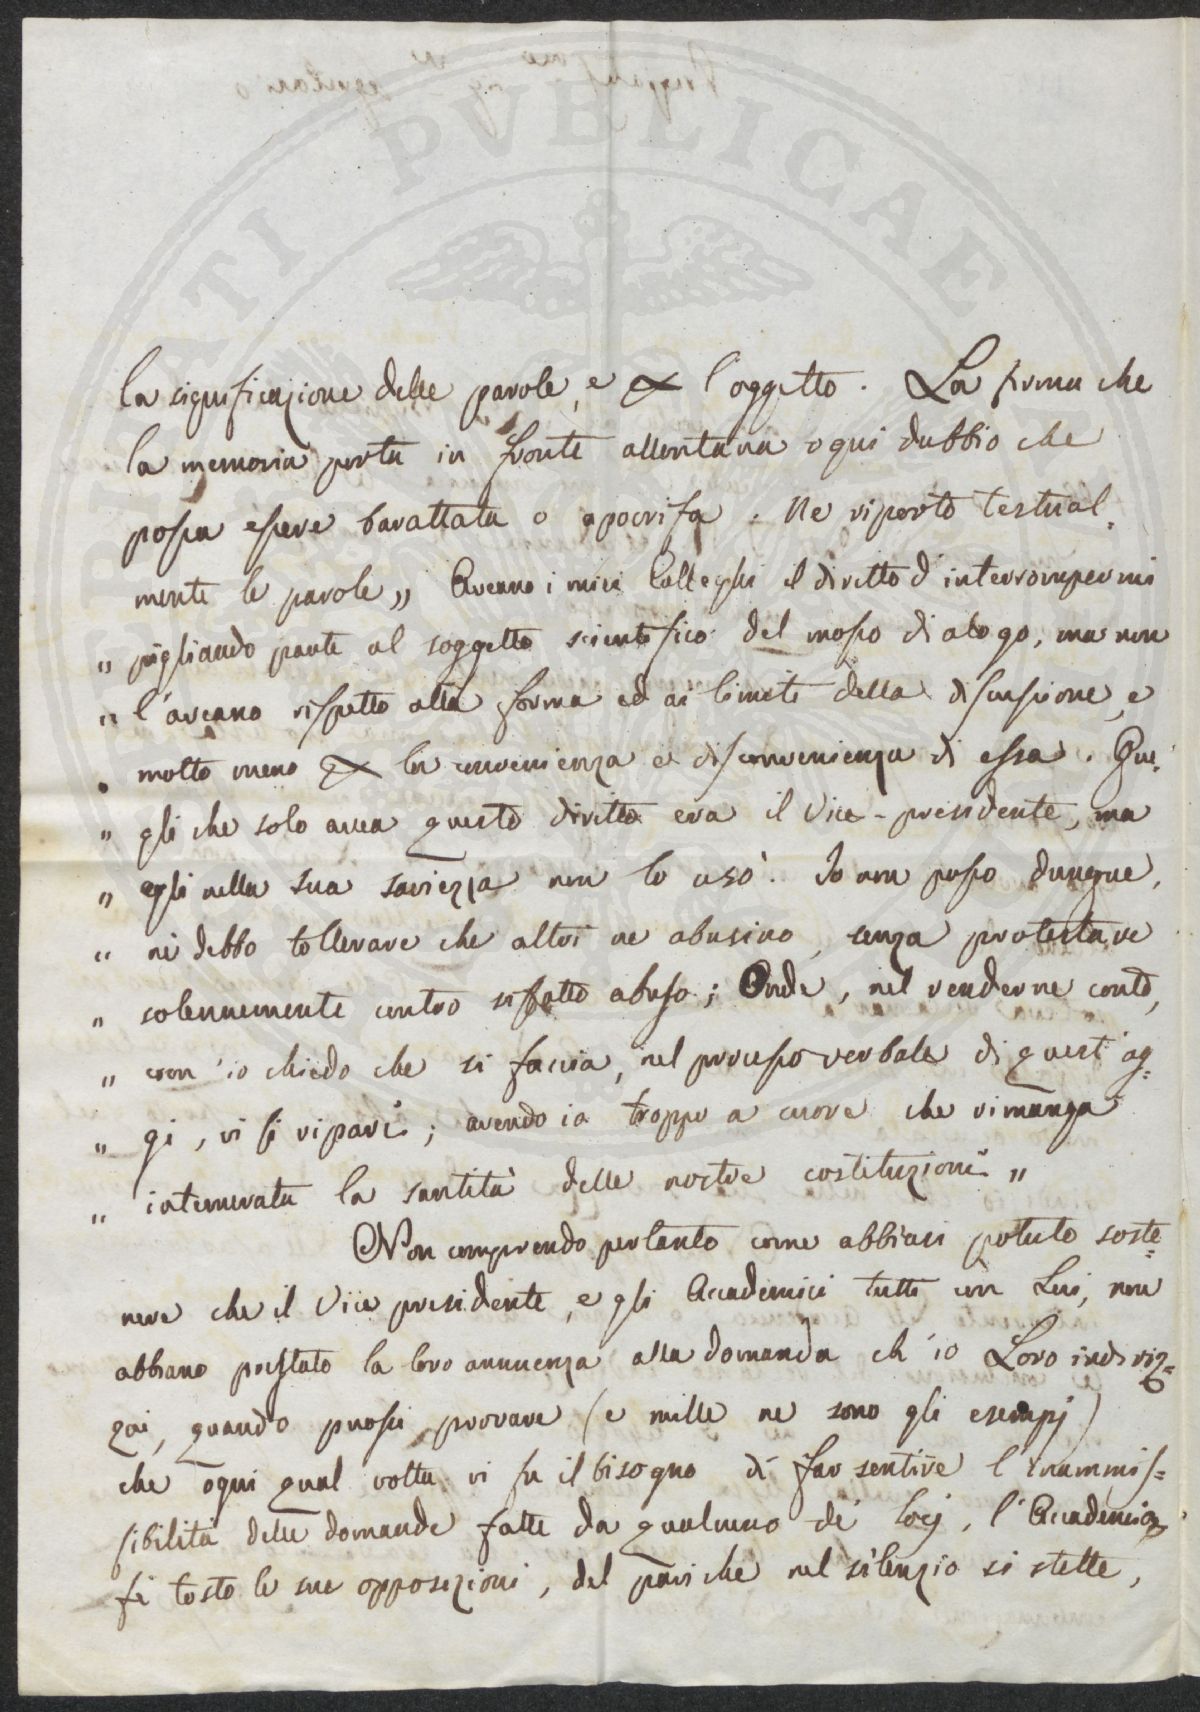 la significazione delle parole, e per l'oggetto. La firma che
la memoria porta in fronte allontana ogni dubbio che
possa essere barattata o apocrifa. Ne riporto testual-
mente le parole „ Aveano i miei Colleghi il diretto d'interrompermi
„ pigliando parte al soggetto scientifico del mosso dialogo, ma non
„ l'aveano rispetto alla forma ed ai limiti della discussione, e
„ molto meno per la convenienza e disconvenienza di essa. Que-
„ gli che solo avea questo diritto era il Vice-presidente, ma
„ egli nella sua saviezza non lo usò. Io non posso dunque,
„ nè debbo tollerare che altri ne abusino, senza protestare
„ solennemente contro siffatto abuso; Onde, nel renderne conto,
„ com'io chiedo che si faccia, nel processo verbale di quest'og-
„ gi, vi si ripari; avendo io troppo a cuore che rimanga
„ intemerata la santità delle nostre costituzioni „
Non comprendo pertanto come abbiasi potuto soste-
nere che il Vice presidente, e gli Accademici tutti con Lui, non
abbiano prestato la loro annuenza alla domanda ch'io Loro indiriz-
zai, quando possi provare (e mille ne sono gli esempj)
che ogni qual volta vi fu il bisogno di far sentire l'inammis-
sibilità delle domande fatte da qualcuno de' Socj, l'Accademia
fè tosto le sue opposizioni, del pari che nel silenzio si stette,